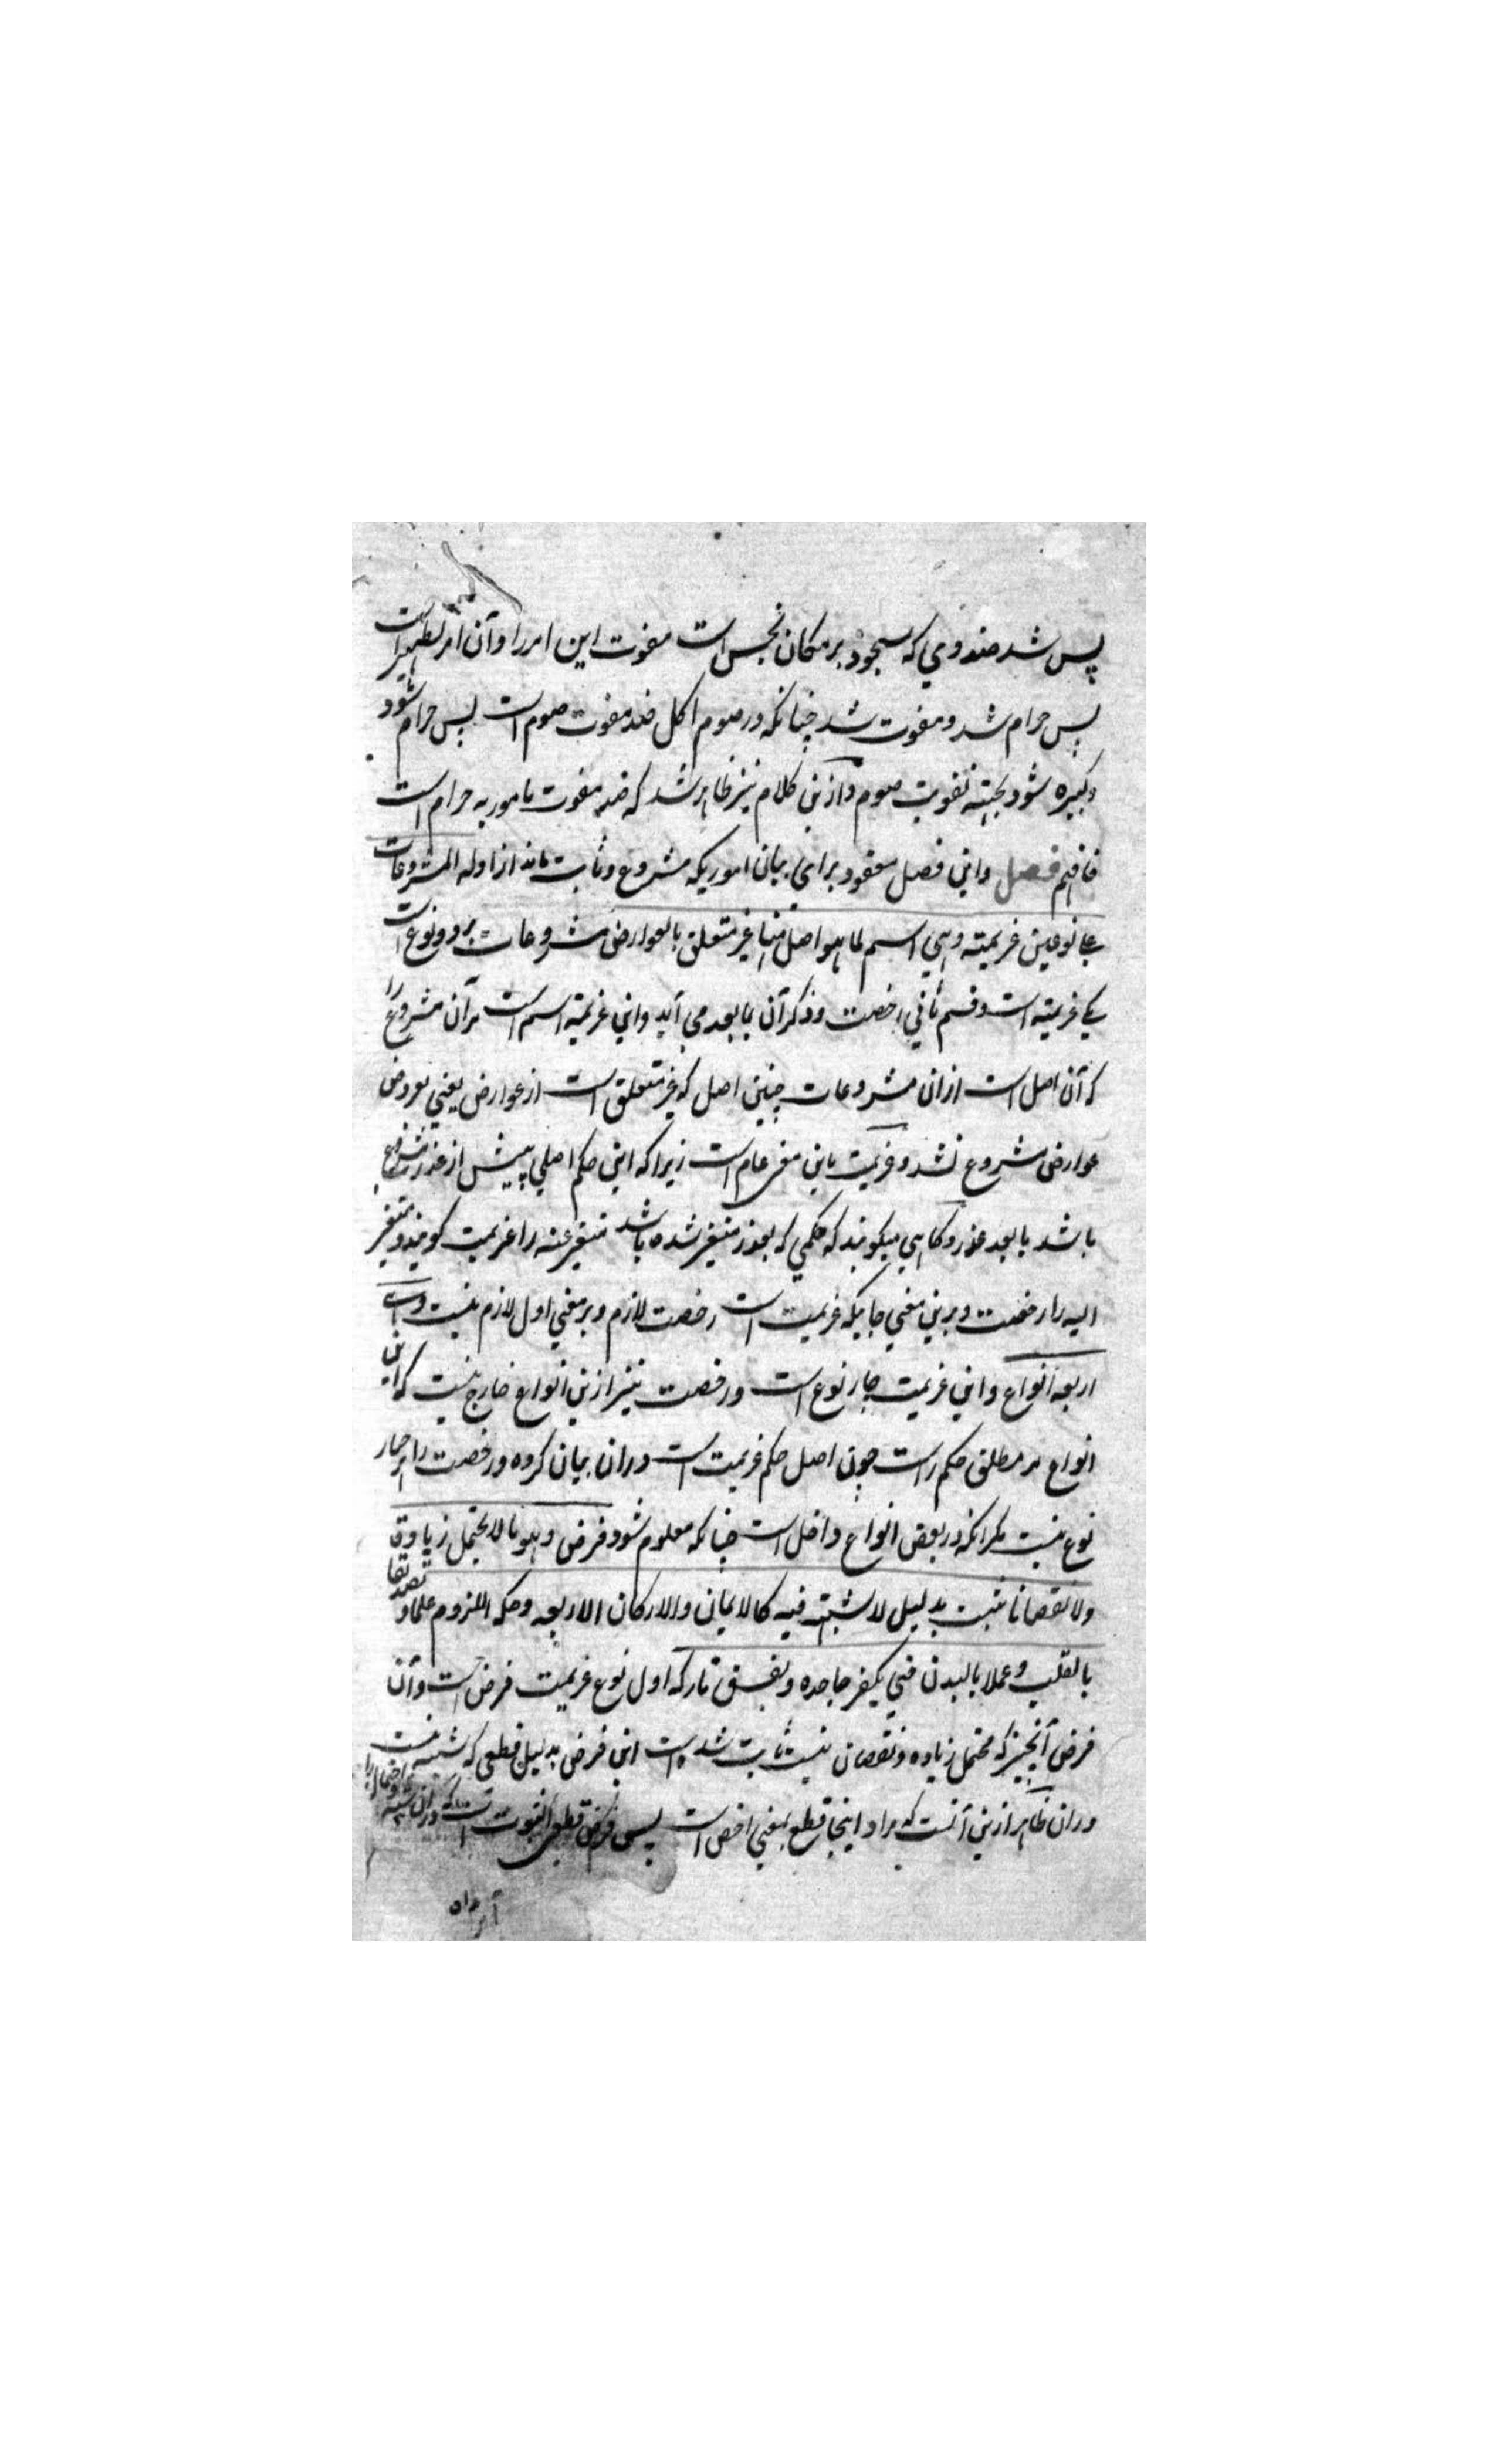 پس شد ضد وي که سجود بر مکان نجس است مفوت این امر را و آن امر تطهیر است
پس حرام شد و مفوت شد چنانکه در صوم اکل ضد مفوت صوم است پس حرام باشد شود
و کبیره شود بجهته تفویت صوم و ازین کلام نیز ظاهر شد که ضد مفوت مامور به حرام است
فافهم فصل و این فصل معقود براي بیان اموریکه مشروع و ثابت ماند از ادله المشروعات
علي نوعین عزیمته وهي اسم لما هو اصل منها غیر متعلق بالعوارض مشروعات بر دو نوع است
یکي عزیمته است و قسم ثاني رخصت و ذکر آن ما بعد مي آید و این عزیمته اسم است مر آن مشروع را
که آن اصل است از ان مشروعات چنین اصل که غیر متعلق است از عوارض یعني بعروض
عوارض مشروع نشد و عزیمت باین معني عام است زیرا که این حکم اصلي پیش از عذر مشروع
باشد یا بعد عذر و کاهي میکویند که حکمي که بعذر متغیر شده باشد متغیر عنه را عزیمت کویند و متغیر
الیه را رخصت و برین معني جائیکه عزیمت است رخصت لازم و بر معني اول لازم نیست وهي
اربعه انواع و این عزیمت چار نوع است و رخصت نیز ازین انواع خارج نیست که این
انواع مر مطلق حکم راست چون اصل حکم عزیمت است در ان بیان کرده و رخصت را هر چار
نوع نیست مکر آنکه در بعض انواع داخل است چنانکه معلوم شود فرض وهو ما لا یحتمل زیادة
ولا نقصانا ثبت بدلیل لا شبهته فیه کالایمان والارکان الاربعه وحکمه اللزوم علما وتصدیقا
بالقلب وعملا بالبدن حتي یکفر جاحده ویفسق تارکه اول نوع عزیمت فرض است و آن
فرض آنچیز که محتمل زیاده و نقصان نیست ثابت شده است این فرض بدلیل قطعي که شبه نیست
در ان ظاهر ازین آنست که مراد اینجا قطع بمعني اخص است پس فرض قطعي الثبوت است که در ان شبه